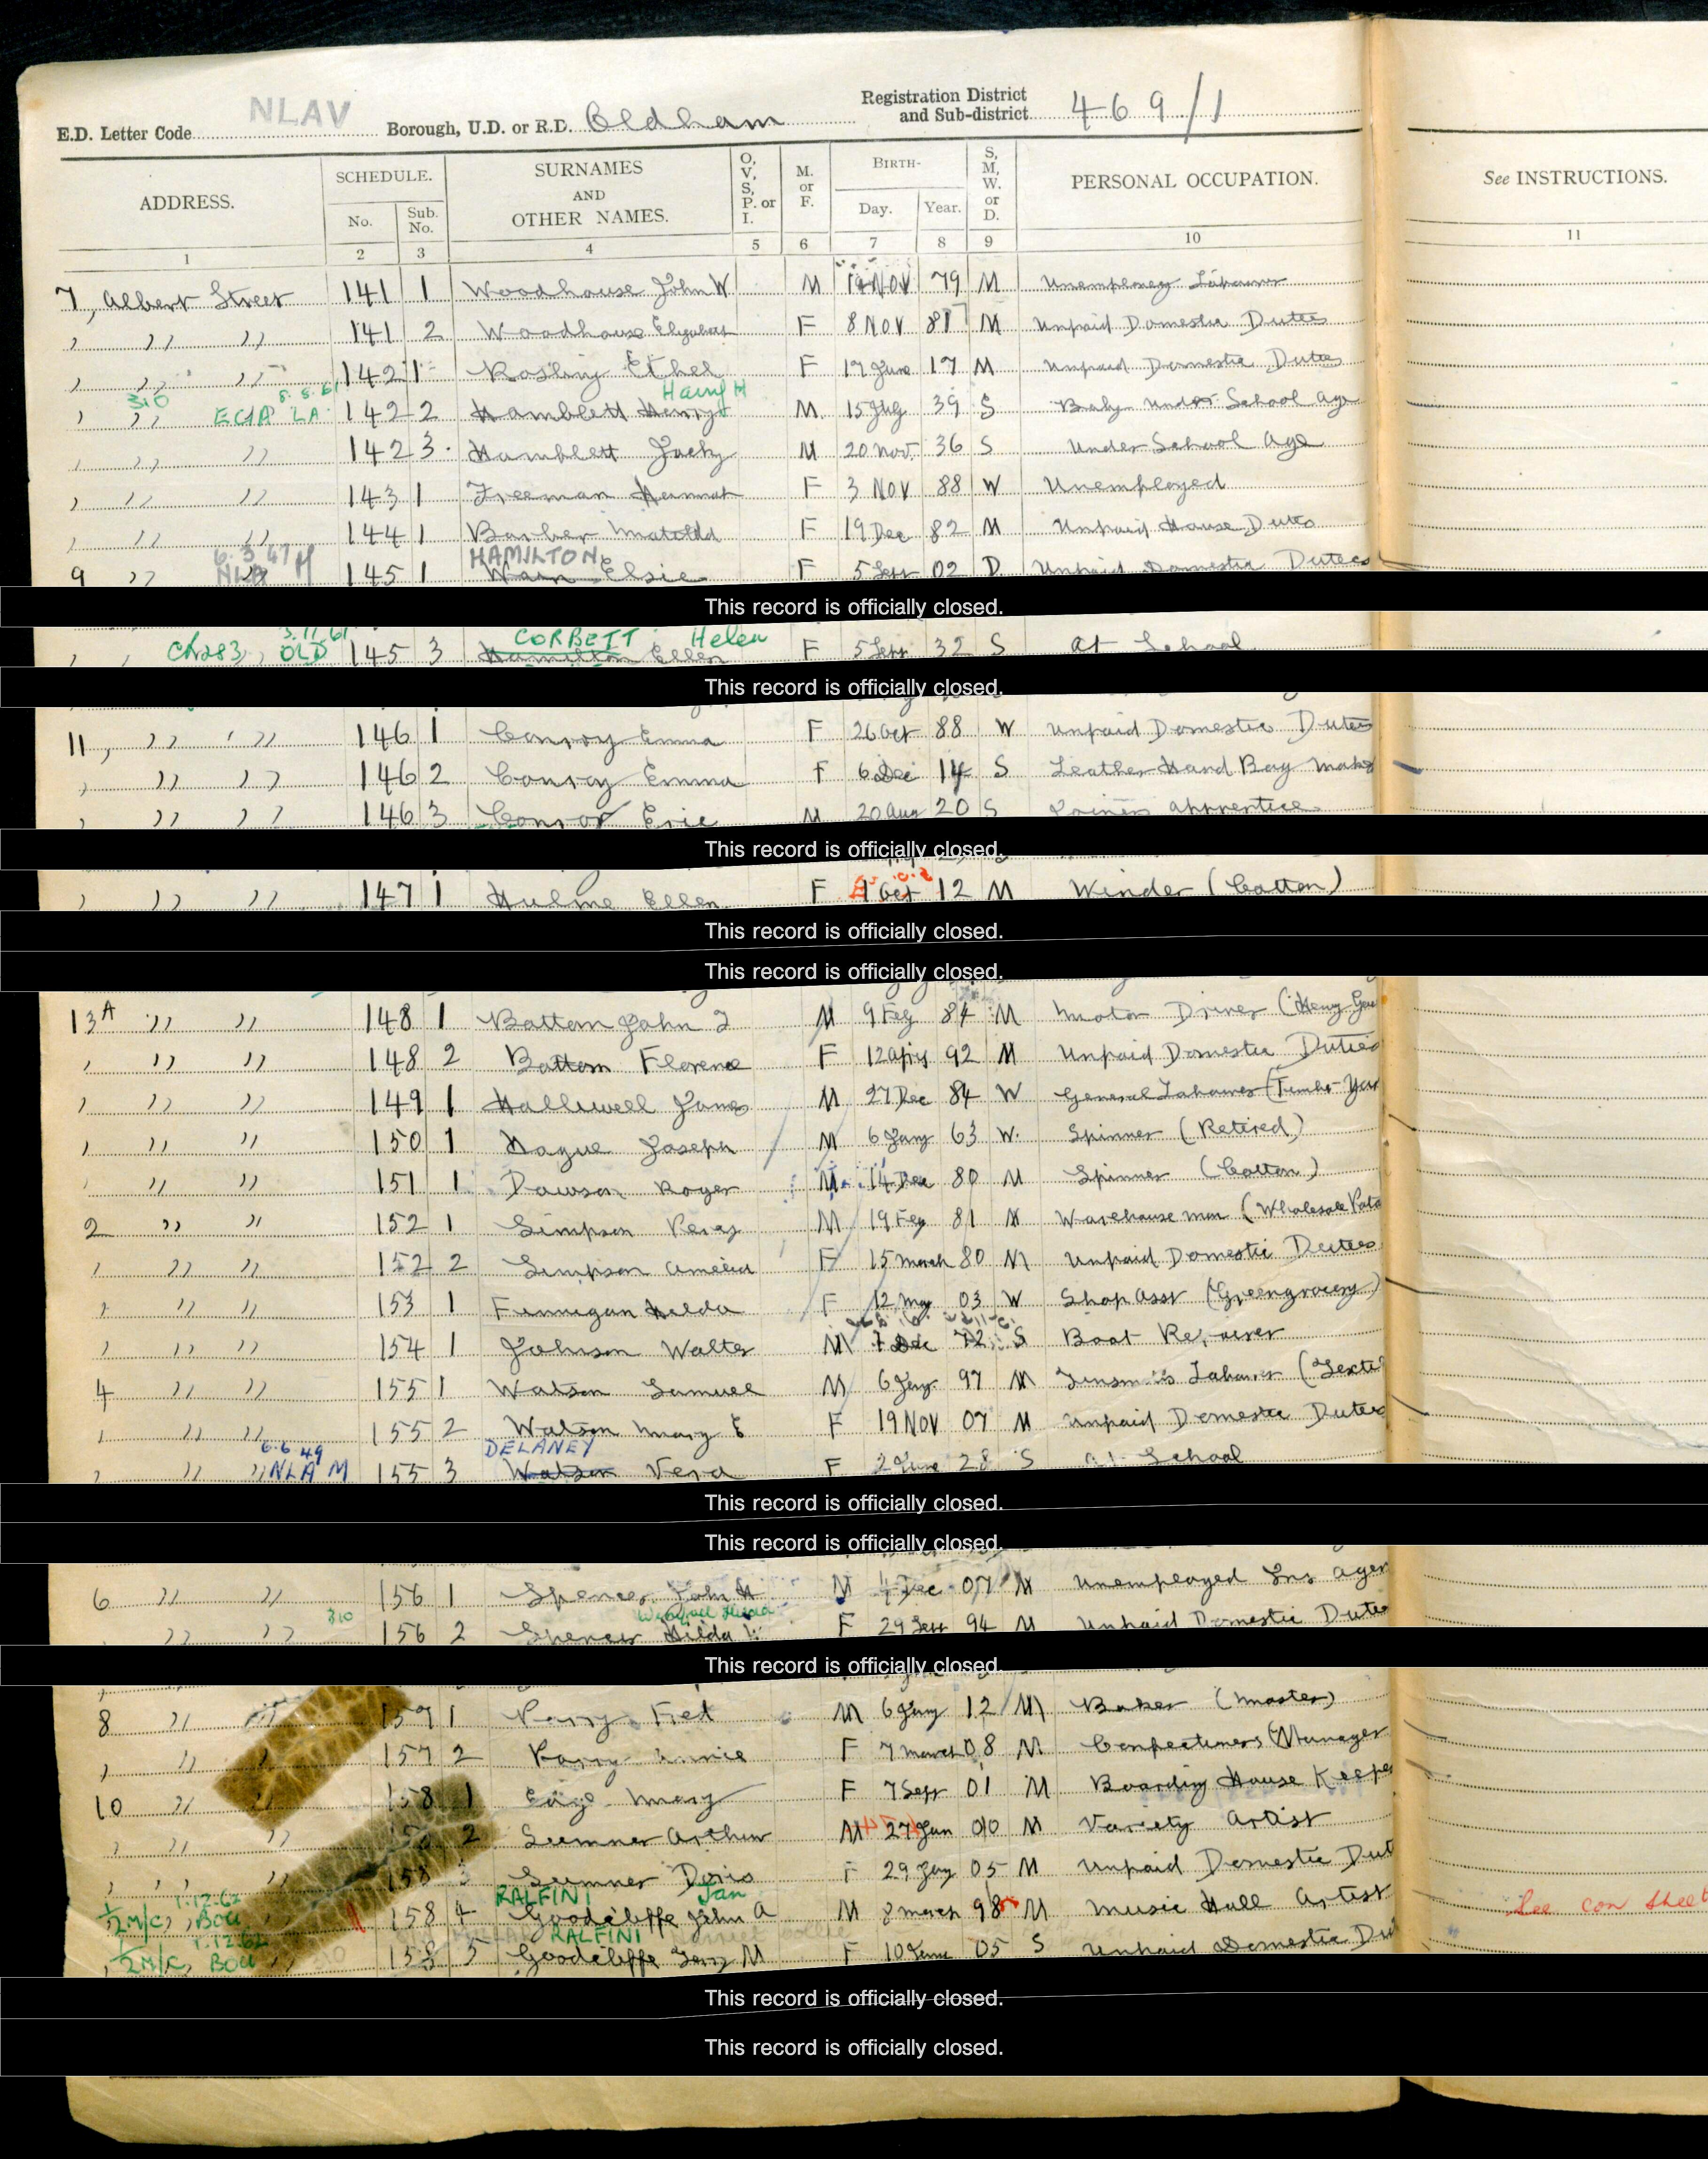 NLAV
E.D. Letter Code Borough, U.D. or R.D. Oldham Registration District and Sub-district 469/1
ADDRESS. SCHEDULE. No. Sub. No. SURNAMES AND OTHER NAMES. O, V, S, P. or I. M. or F. BIRTH- Day. Year. S, M, W. or D. PERSONAL OCCUPATION. See INSTRUCTIONS.
1 2 3 4 5 6 7 8 9 10 11
7, Albert Street 141 1 Woodhouse John W M 19 Nov 79 M Labourer
, ,, ,, 141 2 Woodhouse Elizabeth F 8 Nov 81 M Unpaid Domestic Duties
, ,, ,, 142 1 Ethel F 17 June 17 M Unpaid Domestic Duties
310 ECJA LA 8.5.61 Harry H
, ,, 142 2 Hamblett Henry M 15 39 S Baby under School age
, ,, ,, 142 3 Hamblett Jacky M 20 Nov. 36 S Under School Age
, ,, ,, 143 1 Freeman Hannah F 3 Nov 88 W Unemployed
, ,, ,, 144 1 Barber Matilda F 19 Dec 82 M Unpaid House Duties
6.3.47 M HAMILTON
9 ,, 145 1 Wain Elsie F 5 Sept 02 D Unpaid Domestic Duties
This record is officially closed.
3.11.61 CORBETT Helen
, , OLD 145 3 Hamilton Ellen F 5 Sept 32 S at School
This record is officially closed.
11, ,, ,, 146 1 Conroy Emma F 26 Oct 88 W Unpaid Domestic Duties
, ,, ,, 146 2 Conroy Emma F 6 Dec 14 S Leather Hand Bag
, ,, ,, 146 3 Conroy Eric M 20 Aug 20 S Joiners apprentice
This record is officially closed.
, ,, ,, 147 1 Hulme Ellen F 1 Oct 12 M Winder (Cotton)
This record is officially closed.
This record is officially closed.
13A ,, ,, 148 1 Battom John M 9 Feb 84 M Motor Driver (Heavy
, ,, ,, 148 2 Battom Florence F 12 92 M Unpaid Domestic Duties
, ,, ,, 149 1 Halliwell James M 27 Dec 84 W General Labourer (Timber Yard
, ,, ,, 150 1 Hague Joseph M 6 Jany 63 W. Spinner (Retired)
, ,, ,, 151 1 Dawson Roger M 14 Dec 80 M Spinner (Cotton)
2 ,, ,, 152 1 Simpson Percy M 19 Feb 81 M Warehouse man (Wholesale
, ,, ,, 152 2 Simpson Amelia F 15 March 80 M Unpaid Domestic Duties
, ,, ,, 153 1 Finnegan Hilda F 12 May 03 W Shop Asst (Greengrocery)
, ,, ,, 154 1 Johnson Walter M 7 Dec 72 S Boot Repairer
4 ,, ,, 155 1 Watson Samuel M 6 97 M Labourer
, ,, ,, 155 2 Watson Mary E F 19 Nov 07 M Unpaid Domestic Duties
6.6.49 DELANEY
, ,, ,, NLA M 155 3 Watson Vera F 2 June 28 S at School
This record is officially closed.
This record is officially closed.
6 ,, ,, 156 1 Spencer John H M Dec 07 M Unemployed Ins agent
310 Hilda
,, ,, 156 2 Spencer Hilda F 29 Sept 94 M Unpaid Domestic Duties
This record is officially closed.
8 ,, ,, 157 1 Parry Fred M 6 Jany 12 M Baker (Master)
, ,, ,, 157 2 Parry Annie F 7 March 08 M Confectioners Manager
10 ,, ,, 158 1 Mary F 7 Sept 01 M Boarding House Keeper
, ,, ,, 158 2 Sumner Arthur M 27 Jan 00 M Variety Artist
, , ,, 158 3 Sumner Doris F 29 Jany 05 M Unpaid Domestic Dut
1.12.62 RALFINI Jan
1/2 M/C, BOU 158 4 Goodcliffe John A M 8 March 98 M Music Hall Artist See con sheet
1.12.62 RALFINI
1/2 M/C, BOU 158 5 Goodcliffe M F 10 June 05 S Unpaid Domestic Du
This record is officially closed.
This record is officially closed.